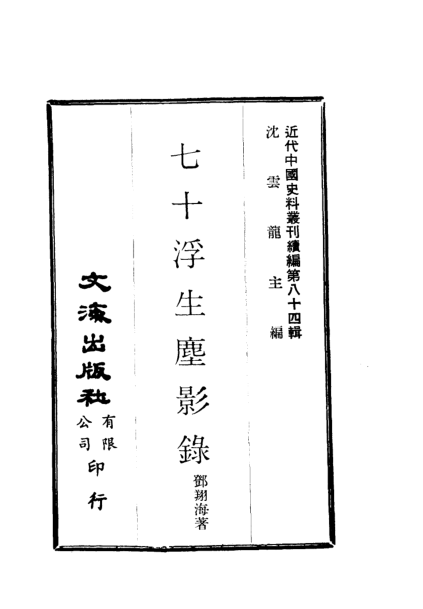 近代中國史料叢刊續編第八十四輯
沈雲龍主編
七十浮生塵影錄
鄧翔海著
文海出版社
有限
公司
印行